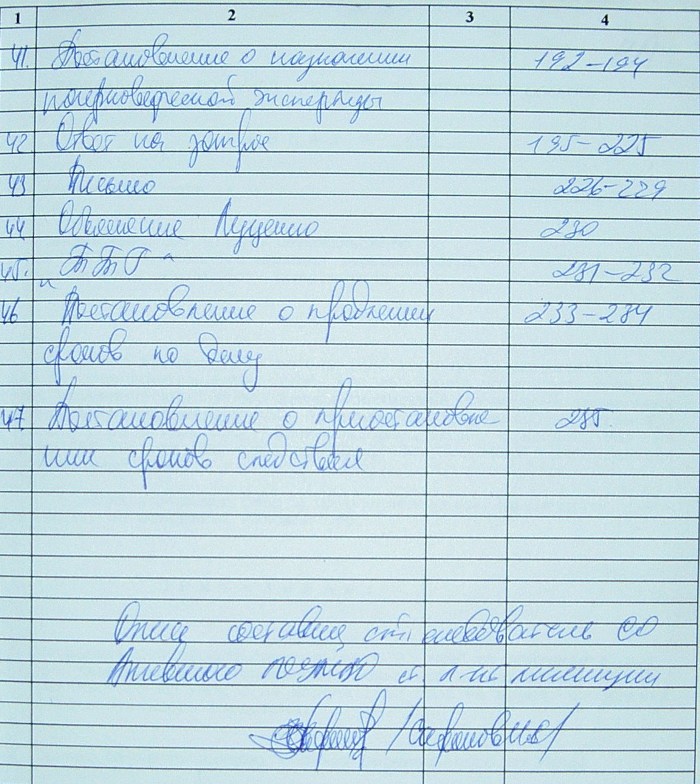 1 2 3 4
41. Постановление о назначении 192-194
почерковедческой экспертизы
42 Ответ на запрос 195-225
43 Письмо 226-229
44 Объяснение Луценко 230
45. 231-232
46 Постановление о продлении 233-234
сроков по делу
47 Постановление о приостановле 235.
нии сроков следствия
Опись составил ст. следователь СО
ст. л-нт милиции